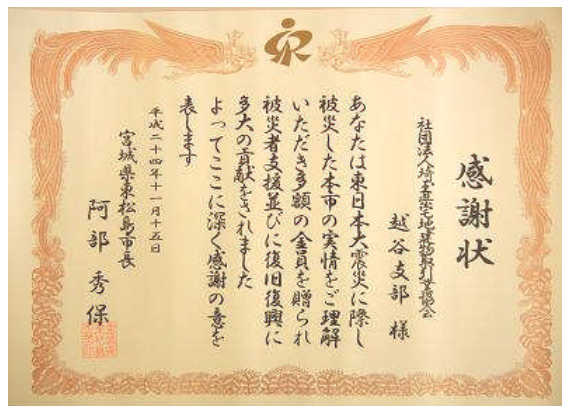 感謝状
社団法人埼玉県宅地建物取引業協会
越谷支部 様
あなたは東日本大震災に際し
被災した本市の実情をご理解
いただき多額の金員を贈られ
被災者支援並びに復旧復興に
多大の貢献をされました
よってここに深く感謝の意を
表します
平成二十四年十一月十五日
宮城県東松島市長
阿部秀保